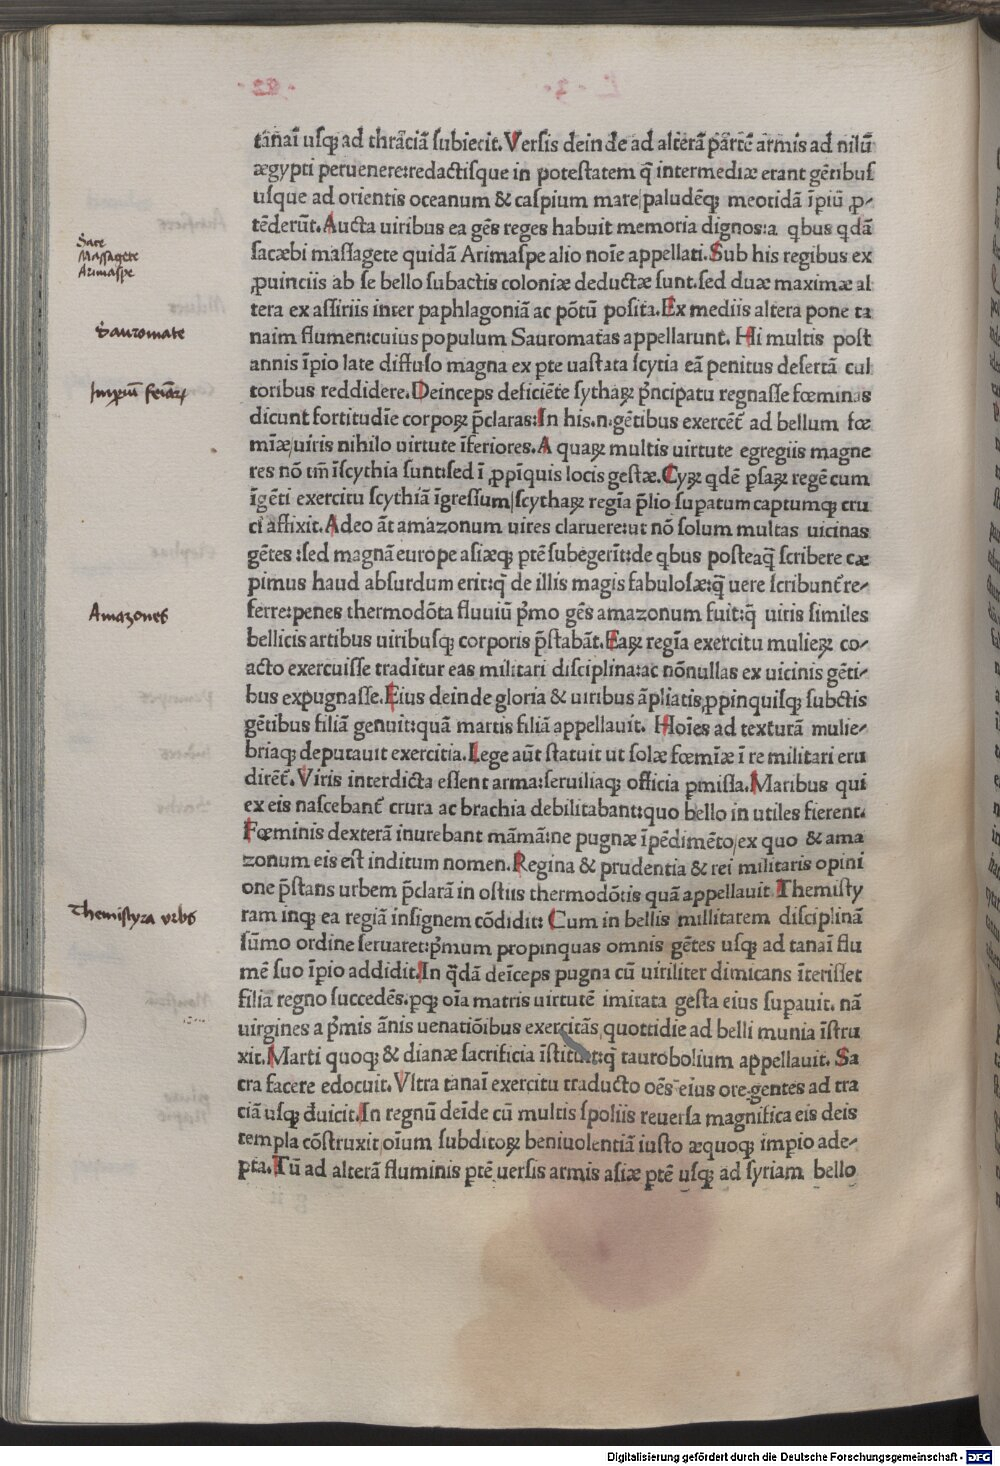 Sace
Massagete
Arimaspe
Sauromate
Imperiũ feĩaꝝ
Amazones
Themistyra vrbs
tãnaĩ uſqꝫ ad thrãciã ſubiecit. Verſis deinde ad alterã partẽ armis ad nilũ
ægypti peruenere: redactiſque in poteſtatem q̃ intermediæ erant gẽtibuſ
uſque ad orientis oceanum & caſpium mare/paludẽqꝫ meotidã ĩpiũ ꝓ-
tẽderũt. Aucta uiribus ea gẽs reges habuit memoria dignos: a qbus qdã
ſacæbi maſſagete quidã Arimaſpe alio noĩe appellati. Sub his regibus ex
ꝓuinciis ab ſe bello ſubactis coloniæ deductæ ſunt. ſed duæ maximæ al
tera ex aſſiriis inter paphlagoniã ac põtũ poſita. Ex mediis altera pone ta
naim flumen: cuius populum Sauromatas appellarunt. Hi multis poſt
annis ĩpio late diffuſo magna ex pte uaſtata ſcytia eã penitus deſertã cul
toribus reddidere. Deinceps deficiẽte ſythaꝝ p̃ncipatu regnaſſe fœminas
dicunt fortitudĩe corpoꝝ p̃claras: In his .n. gẽtibus exercẽt̃ ad bellum fœ
mĩæ/uiris nihilo uirtute ĩferiores. A quaꝝ multis uirtute egregiis magne
res nõ tm̃ ĩſcythia ſunt: ſed ĩ ꝓpĩquis locis geſtæ. Cyꝝ qdẽ pſaꝝ regẽ cum
ĩgẽti exercitu ſcythiã ĩgreſſum/ſcythaꝝ regĩa p̃lio ſupatum captumqꝫ cru
ci affixit. Adeo ãt amazonum uires claruere: ut nõ ſolum multas uicinas
gẽtes: ſed magnã europe aſiæqꝫ ptẽ ſubegerĩt: de qbus poſteaq̃ ſcribere cæ
pimus haud abſurdum erit: q̃ de illis magis fabuloſæ: q̃ uere ſcribunt̃ re-
ferre: penes thermodõta fluuiũ p̃mo gẽs amazonum fuit: q̃ uiris ſimiles
bellicis artibus uiribuſqꝫ corporis p̃ſtabãt. Eaꝝ regĩa exercitu mulieꝝ co-
acto exercuiſſe traditur eas militari diſciplina: ac nõnullas ex uicinis gẽti-
bus expugnaſſe. Eius deinde gloria & uiribus ãpliatis, ꝓpinquiſqꝫ ſubctis
gẽtibus filiã genuit: quã martis filiã appellauit. Hoĩes ad texturã mulie-
briaqꝫ deputauit exercitia. Lege aũt ſtatuit ut ſolæ fœmĩæ ĩ re militari eru
dirẽt̃. Viris interdicta eſſent arma: ſeruiliaqꝫ officia pmiſſa. Maribus qui
ex eis naſcebant̃ crura ac brachia debilitabant: quo bello inutiles fierent.
Fœminis dexterã inurebant mãmã: ne pugnæ ĩpẽdimẽto/ex quo & ama
zonum eis eſt inditum nomen. Regina & prudentia & rei militaris opini
one p̃ſtans urbem p̃clarã in oſtiis thermodõtis quã appellauit Themiſty
ram inqꝫ ea regiã inſignem cõdidit: Cum in bellis millitarem diſciplinã
ſũmo ordine ſeruaret: p̃mum propinquas omnis gẽtes uſqꝫ ad tanaĩ flu
mẽ ſuo ĩpio addidit. In q̃dã deĩceps pugna cũ uiriliter dimicans ĩteriſſet
filiã regno ſuccedẽs. pqꝫ oĩa matris uirtutẽ imitata geſta eius ſupauit. nã
uirgines a p̃mis ãnis uenatiõibus exercitãs quottidie ad belli munia ĩſtru
xit. Marti quoqꝫ & dianæ ſacrificia ĩſtituit: q̃ taurobolium appellauit. Sa
cra facere edocuit. Vltra tanaĩ exercitu traducto oẽs eius ore gentes ad tra
ciã uſqꝫ đuicit. In regnũ deĩde cũ multis ſpoliis reuerſa magnifica eis deis
templa cõſtruxit/oĩum ſubditoꝝ beniuolentiã iuſto æquoqꝫ impio ade-
pta. Tũ ad alterã fluminis ptẽ uerſis armis aſiæ ptẽ uſqꝫ ad ſyriam bello
Digitalisierung gefördert durch die Deutsche Forschungsgemeinschaft - DFG